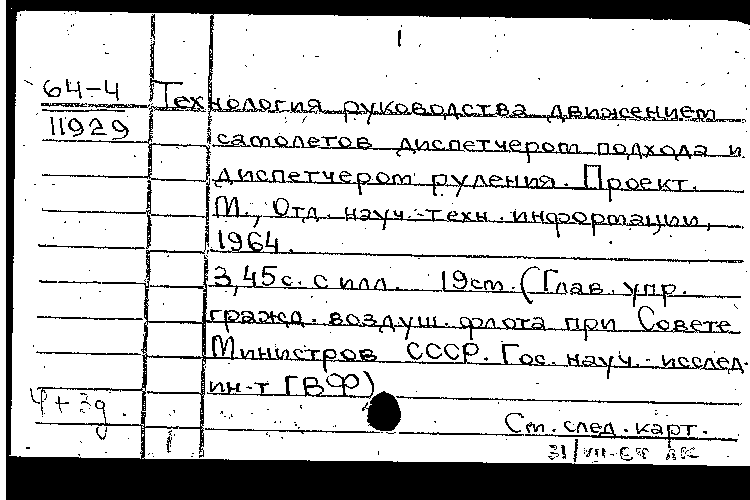 1
64-4 Технология руководства движением
11929 самолетов диспетчером подхода и
диспетчером руления. Проект.
М., Отд. науч.-техн. информации,
1964.
3,45с. с илл. 19см. (Глав. упр.
гражд. воздуш. флота при Совете
Министров СССР. Гос. науч.-исслед.
ин-т ГВФ)
См. след. карт.
31/VII-64